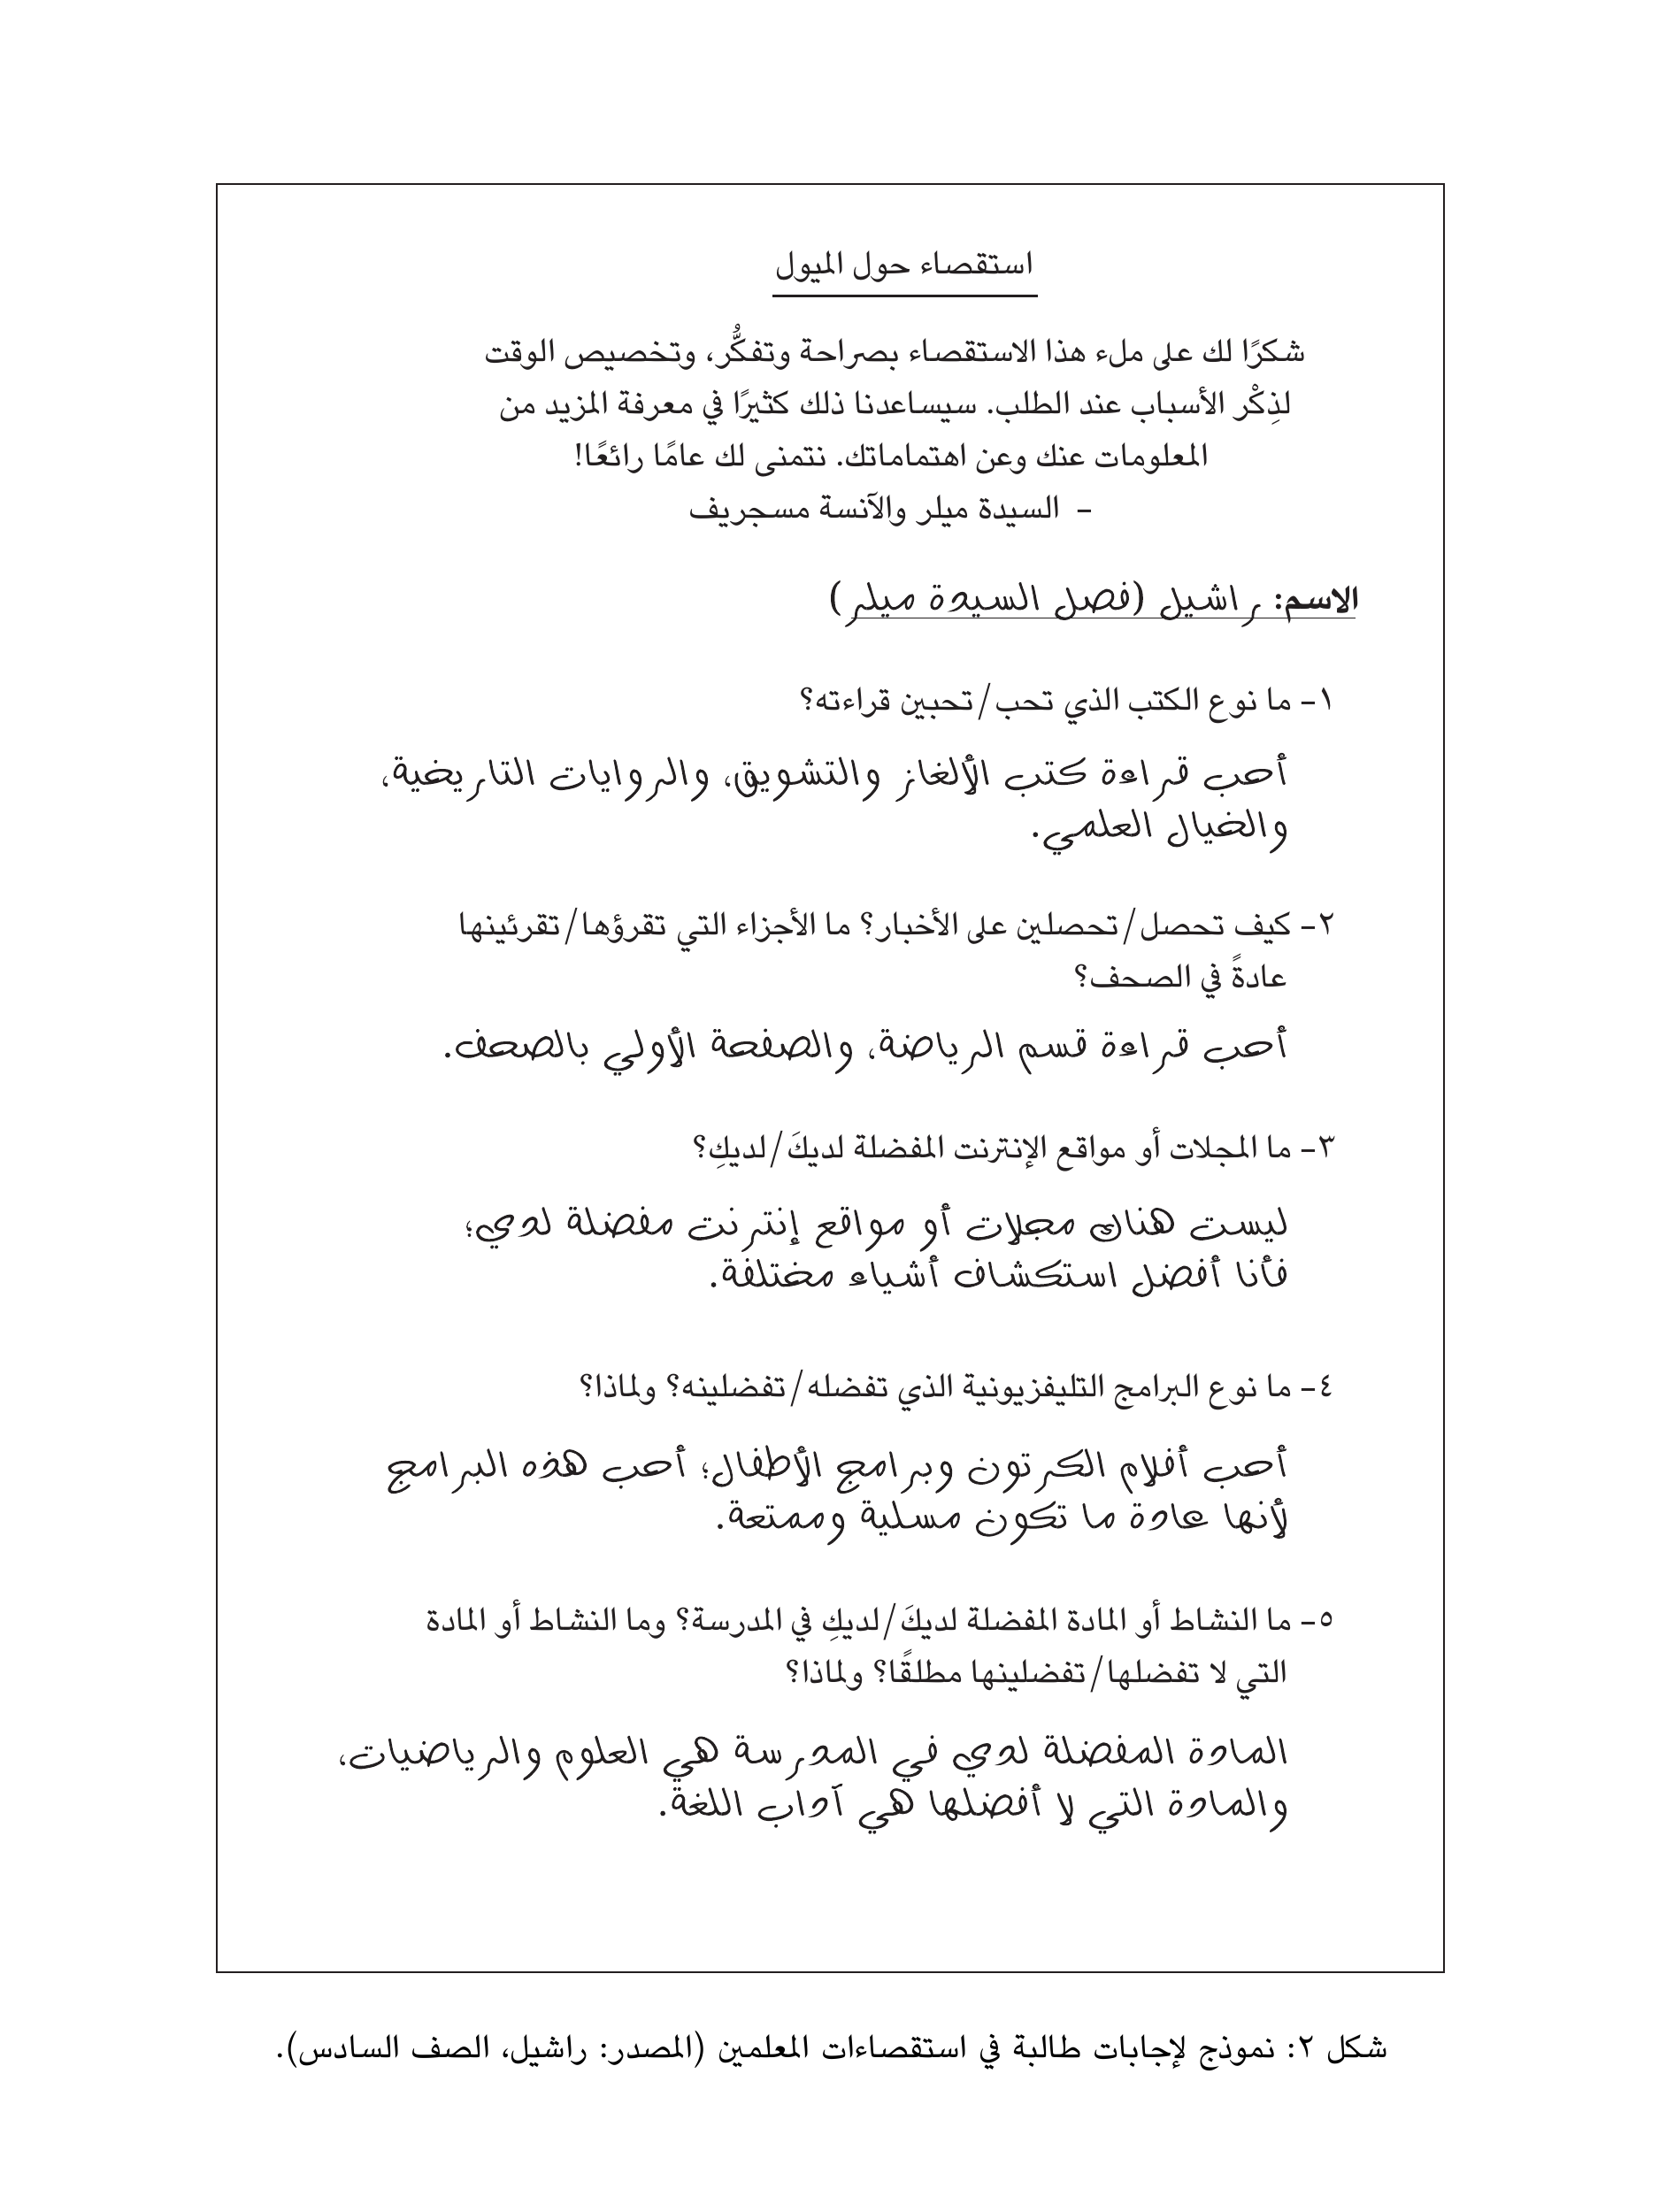 استقصاء حول الميول
شكرًا لك على ملء هذا الاستقصاء بصراحة وتفكُّر، وتخصيص الوقت
لذِكْر الأسباب عند الطلب. سيساعدنا ذلك كثيرًا في معرفة المزيد من
المعلومات عنك وعن اهتماماتك. نتمنى لك عامًا رائعًا!
– السيدة ميلر والآنسة مسجريف
الاسم: راشيل (فصل السيدة ميلر)
١– ما نوع الكتب الذي تحب/تحبين قراءته؟
أحب قراءة كتب الألغاز والتشويق، والروايات التاريخية،
والخيال العلمي.
٢– كيف تحصل/تحصلين على الأخبار؟ ما الأجزاء التي تقرؤها/تقرئينها
عادةً في الصحف؟
أحب قراءة قسم الرياضة، والصفحة الأولي بالصحف.
٣– ما المجلات أو مواقع الإنترنت المفضلة لديكَ/لديكِ؟
ليست هناك مجلات أو مواقع إنترنت مفضلة لدي؛
فأنا أفضل استكشاف أشياء مختلفة.
٤– ما نوع البرامج التليفزيونية الذي تفضله/تفضلينه؟ ولماذا؟
أحب أفلام الكرتون وبرامج الأطفال؛ أحب هذه البرامج
لأنها عادة ما تكون مسلية وممتعة.
٥– ما النشاط أو المادة المفضلة لديكَ/لديكِ في المدرسة؟ وما النشاط أو المادة
التي لا تفضلها/تفضلينها مطلقًا؟ ولماذا؟
المادة المفضلة لدي في المدرسة هي العلوم والرياضيات،
والمادة التي لا أفضلها هي آداب اللغة.
شكل ٢: نموذج لإجابات طالبة في استقصاءات المعلمين (المصدر: راشيل، الصف السادس).